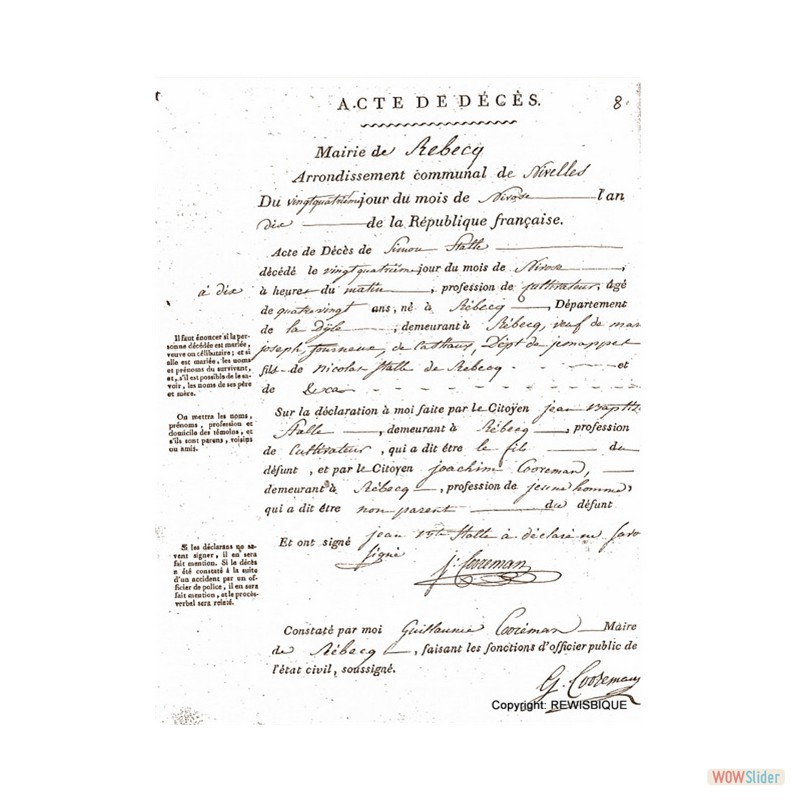 ACTE DE DÉCÈS. 8.
Mairie de Rebecq
Arrondissement communal de Nivelles
Du vingtquatrième jour du mois de Nivose l'an
dix de la République française.
Acte de Décès de Simon Stalle
décédé le vingtquatrième jour du mois de Nivose,
à dix à heures du matin, profession de cultivateur, âgé
de quatrevingt ans, né à Rébecq, Département
de la Dÿle, demeurant à Rébecq, veuf de mar
joseph, de Dépt de jemappes
fils de Nicolas Stalle de Rebecq et
de
Il faut énoncer si la per-
sonne décédée est mariée,
veuve ou célibataire; et si
elle est mariée, les noms
et prénoms du survivant,
et, s'il est possible de le sa-
voir, les noms de ses père
et mère.
Sur la déclaration à moi faite par le Citoyen jean Baptis
Stalle, demeurant à Rébecq, profession
de Cultivateur, qui a dit être le fils du
défunt, et par le Citoyen joachim Cooreman,
demeurant à Rébecq, profession de jeune homme,
qui a dit être non parent du défunt
On mettra les noms,
prénoms, profession et
domicile des témoins, et
s'ils sont parens, voisins
ou amis.
Et ont signé jean Bte Stalle a déclaré ne savo
signé
J: Cooreman
Si les déclarans ne sa-
vent signer, il en sera
fait mention. Si le décès
a été constaté à la suite
d'un accident par un of-
ficier de police, il en sera
fait mention, et le procès-
verbal sera relaté.
Constaté par moi Guillaume Cooreman Maire
de Rébecq, faisant les fonctions d'officier public de
l'état civil, soussigné.
G. Cooreman
Copyright: REWISBIQUE
WOWSlider